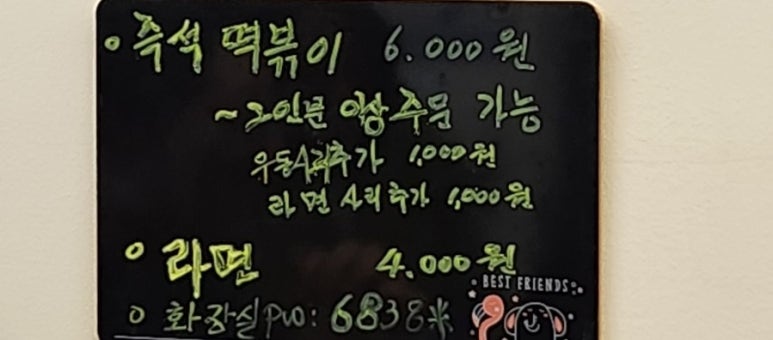 ◦ 즉석 떡볶이 6.000원
~2인분 이상 주문 가능
우동사리추가 1,000원
라면 사리 추가 1,000원
◦ 라면 4.000원
BEST FRIENDS
◦ 화장실pw: 6838※